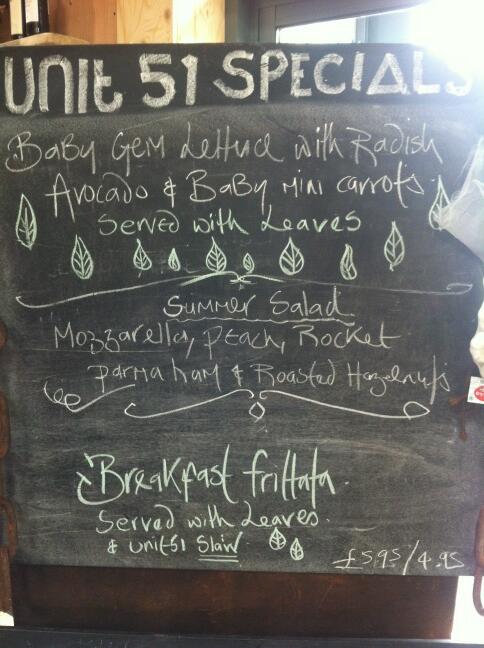 UNIT 51 SPECIALS
Baby Gem Lettuce with Radish
Avocado & Baby mini carrots.
Served with Leaves
Summer Salad
Mozzarella, peach, Rocket
parma ham & Roasted Hazelnuts
Breakfast frittata.
Served with Leaves.
& Unit 51 Slaw
£5.95/4.95